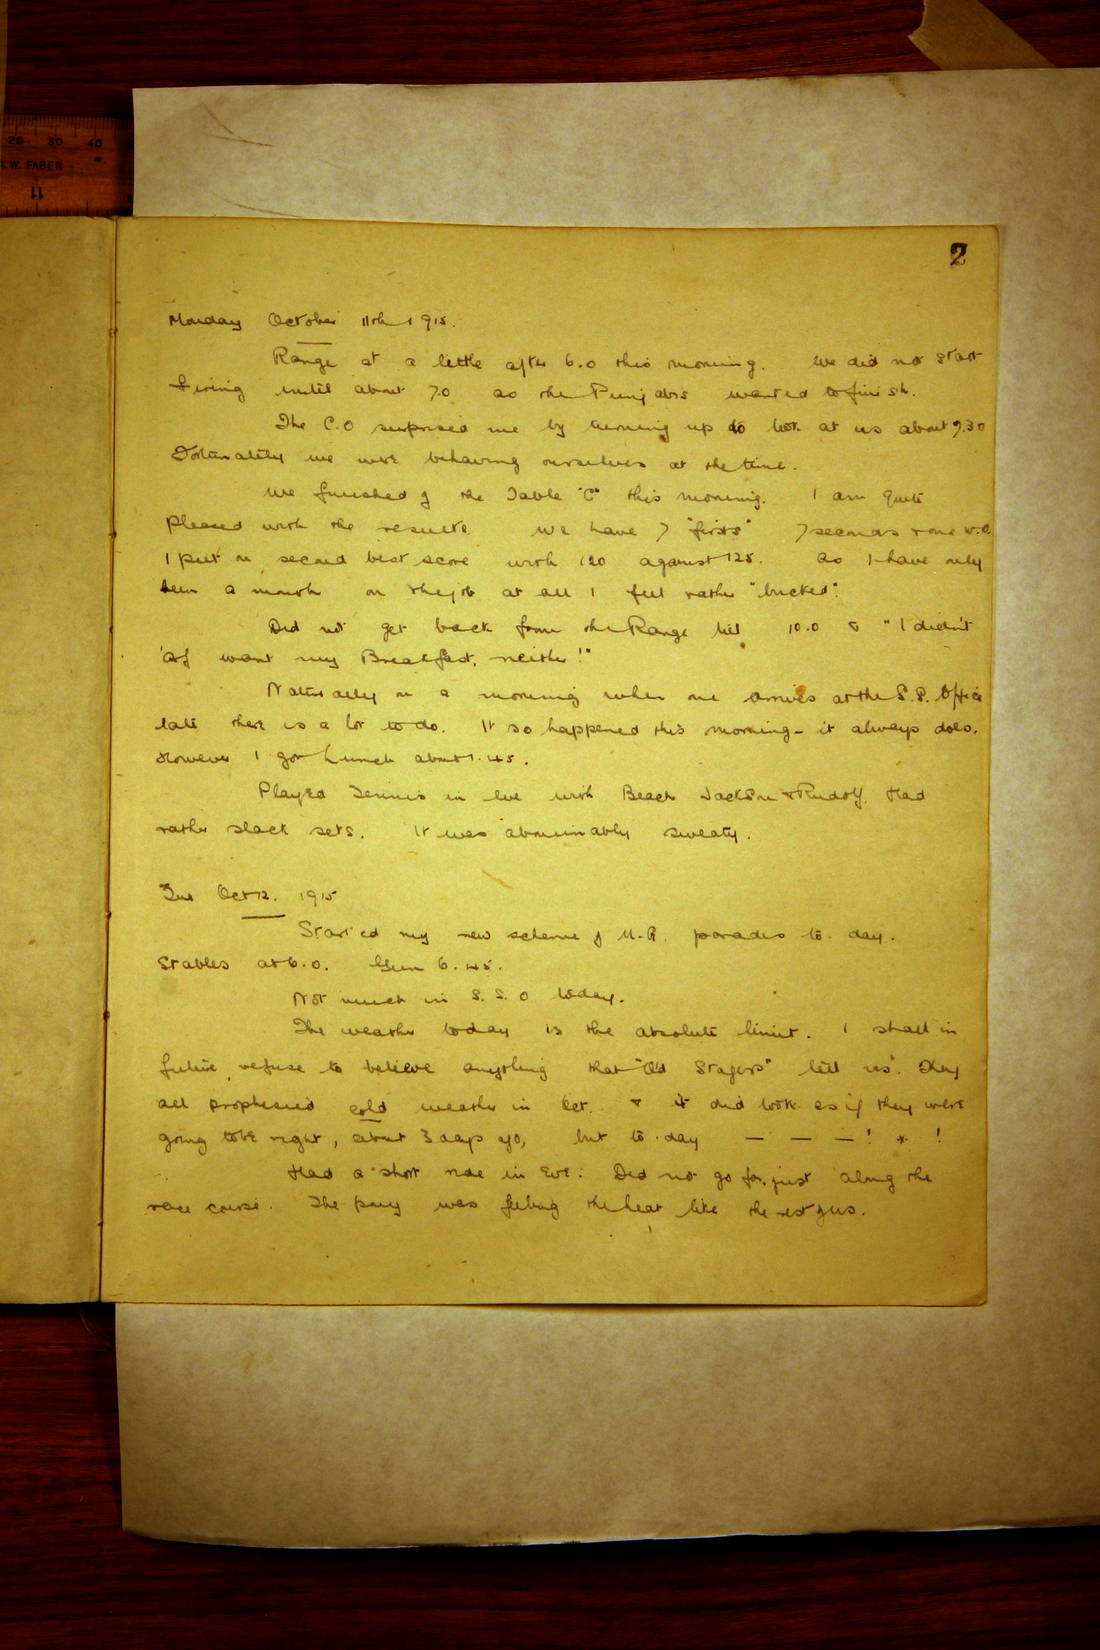 20 30 40
W. FABER
11
2
Monday October 11th 1915.
Range at a little after 6.0 this morning. We did not start
firing until about 7.0 as the Punjabis wanted to finish.
The C.O surprised me by turning up to look at us about 7.30
Fortunately we were behaving ourselves at the time.
We finished of the Table "C" this morning. I am quite
pleased with the results. We have 7 "firsts" 7 seconds & one
I put in second best score with 120 against 125. As I have only
been a month on the job at all I feel rather "bucked".
Did not get back from the Range till 10.0 & "I didn't
'alf want my Breakfast, neither!"
Naturally on a morning when one arrives at the Office
late there is a lot to do. It so happened this morning - it always does.
However I got Lunch about 1.45.
Played Tennis in Eve with Beach Jackson & Rudolf. Had
rather slack sets. It was abominably sweaty.
Tues Oct 12. 1915
Started my new scheme of M.G. parades to day.
Stables at 6.0. Gun 6.45.
Not much in S.S.O today.
The weather today is the absolute limit. I shall in
future refuse to believe anything that "Old Stagers" tell us. They
all prophesied cold weather in Oct. & it did look as if they were
going to be right, about 3 days ago, but to-day — — — ! * !
Had a short ride in Eve: Did not go far, just along the
race course. The pony was feeling the heat like the rest of us.